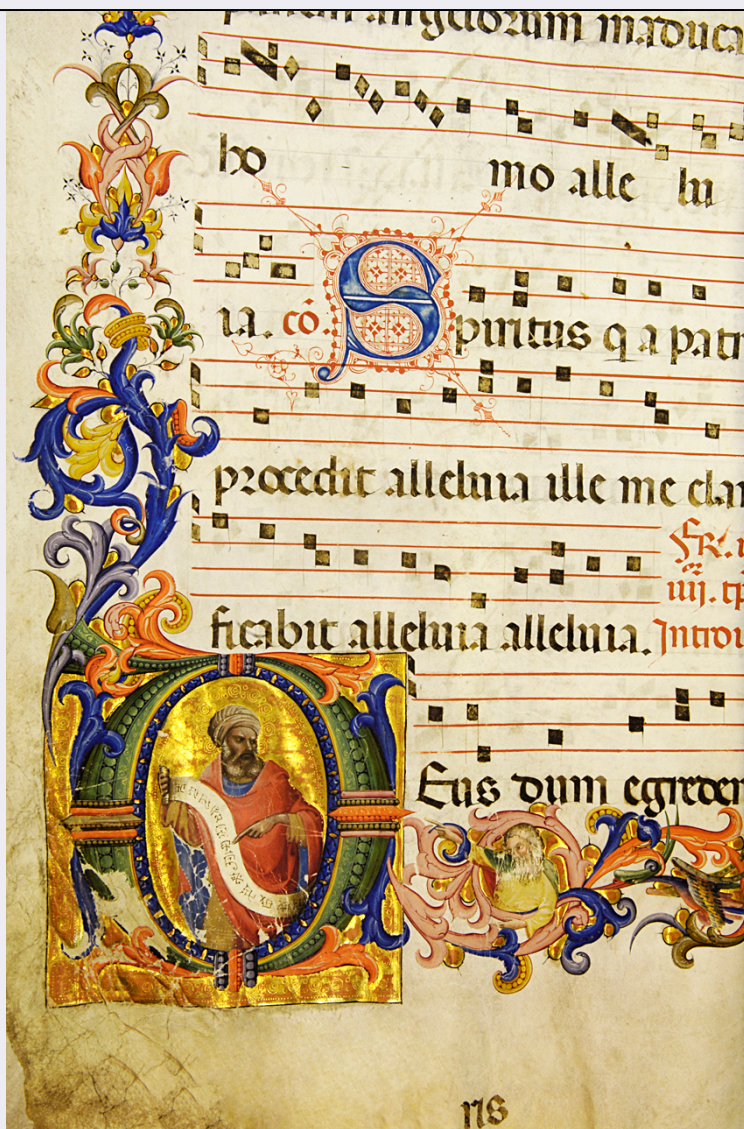 panem angelorum māduca
ho mo alle lu
ia. cō. Spiritus q a patr
procedit alleluia ille me clar
ficabit alleluia alleluia. Introi
FR.
iiij. tp
Deus dum egreder